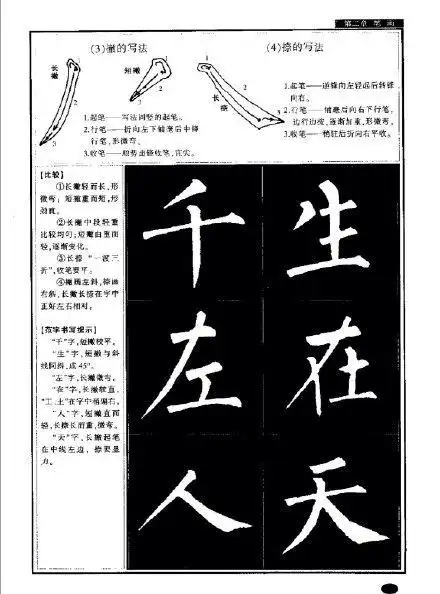 第二章 笔画
(3)撇的写法
(4)捺的写法
长撇
短撇
长捺
1
2
3
1
2
3
1
2
3
1.起笔——写法同竖的起笔。
2.行笔——折向左下铺毫后中锋
行笔,形微弯。
3.收笔——趁势出锋收笔,
1.起笔——逆锋向左轻起后转锋
向右。
2.行笔——铺毫后向右下行笔,
边行边按,逐渐加重,形微弯。
3.收笔——稍驻后折向右平收。
【比较】
①长撇轻而长,形
微弯;短撇重而短,形
劲直。
②长撇中段轻重
比较均匀;短撇由重而
轻,逐渐变化。
③长捺“一波三
折”,收笔要平。
④撇画左斜,捺画
右斜,长撇长捺在字中
正好左右相对。
【范字书写提示】
“千”字,短撇较平。
“生”字,短撇与斜
线同斜,成45°。
“左”字,长撇微弯。
“在”字,长撇较直,
“工、土”在字中稍偏右。
“人”字,短撇直而
轻,长捺长而重,微弯。
“天”字,长撇起笔
在中线左边,捺要显
力。
千
生
左
在
人
天